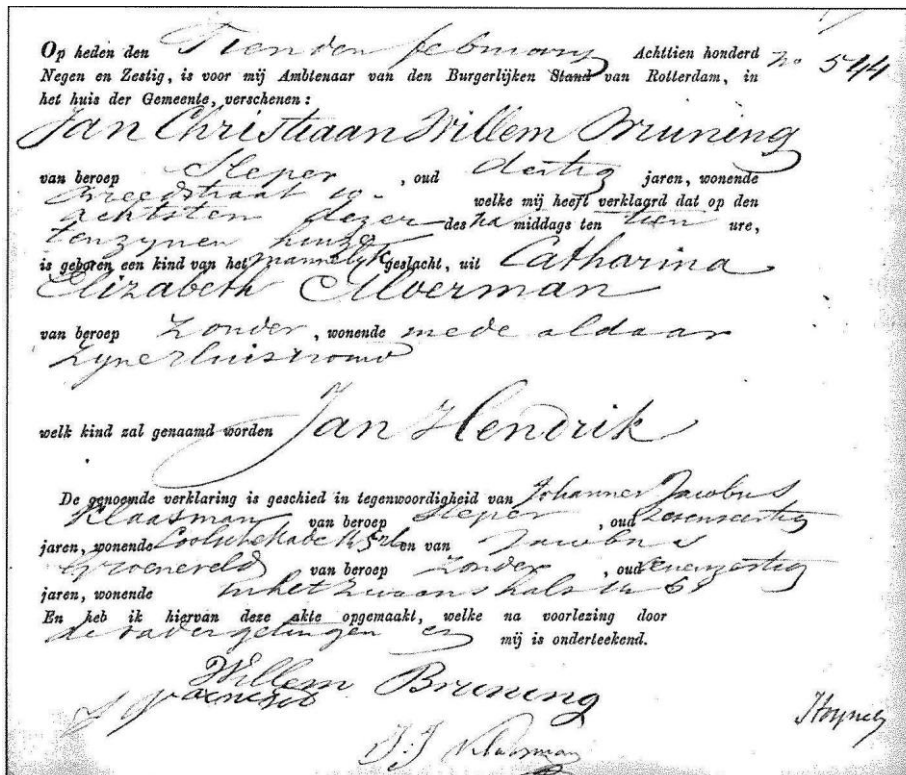 Op heden den Tienden february Achttien honderd
No 544
Negen en Zestig, is voor mij Ambtenaar van den Burgerlijken Stand van Rotterdam, in
het huis der Gemeente, verschenen:
Jan Christiaan Willem Bruning
van beroep Sleper, oud dertig jaren, wonende
welke mij heeft verklaard dat op den
achtsten dezer des na middags ten tien ure,
tenzynen huize
is geboren een kind van het mannelyk geslacht, uit Catharina
Elizabeth Alverman
van beroep zonder, wonende mede aldaar
zyne huisvrouw
welk kind zal genaamd worden Jan Hendrik
De genoemde verklaring is geschied in tegenwoordigheid van Johannes Jacobus
Klaasman van beroep Sleper, oud
jaren, wonende en van Jacobus
Groeneveld van beroep zonder, oud
jaren, wonende in het zwaanshals
En heb ik hiervan deze akte opgemaakt, welke na voorlezing door
mij is onderteekend.
Willem Bruning
J. J. Klaasman